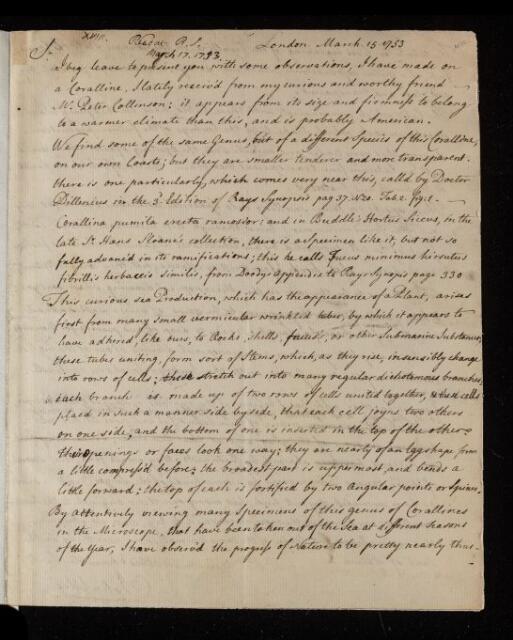 XVIII. Read at R.S. London March 15 1753
March 17. 1753.
Sr.
I beg leave to present you with some observations, I have made on
a Coralline, I lately receiv'd from my curious and worthy friend
Mr. Peter Collinson; it appears from its size and firmness to belong
to a warmer climate than this, and is probably American.
We find some of the same Genus, but of a different Species of this Coralline,
on our own Coasts; but they are smaller tenderer and more transparent.
there is one particularly, which comes very near this, calld by Doctor
Dillenius in the 3d. Edition of Rays Synopsis pag 37. No 20. Tab 2. fig 1.
Corallina pumila erecta ramosior; and in Buddle's Hortus Siccus, in the
late Sr. Hans Sloane's collection, there is a Specimen like it, but not so
fully advanc'd in its ramifications; this he calls Fucus minimus hirsutus
fibrillis herbaceis similis, from Doody's appendix to Rays Synopsis page 330
This curious sea Production, which has the appearance of a Plant, arises
first from many small vermicular wrinkled tubes, by which it appears to
have adhered, like ours, to Rocks, shells, fucus's, or other Submarine Substances;
these tubes uniting, form sort of Stems, which, as they rise, insensibly change
into rows of cells; these stretch out into many regular dichotomous branches,
each branch is made up of two rows of cells united together, & these cells
placed in such a manner side by side, that each cell joyns two others
on one side, and the bottom of one is inserted in the top of the other
their openings or faces look one way; they are nearly of an Eggshape form
a little compress'd before; the broadest part is uppermost, and bends a
little forward; the top of each is fortified by two Angular points or Spines.
By attentively viewing many Specimens of this genus of Corallines
in the Microscope, that have been taken out of the Sea at different seasons
of the Year, I have observ'd the progress of Nature to be pretty nearly thus.